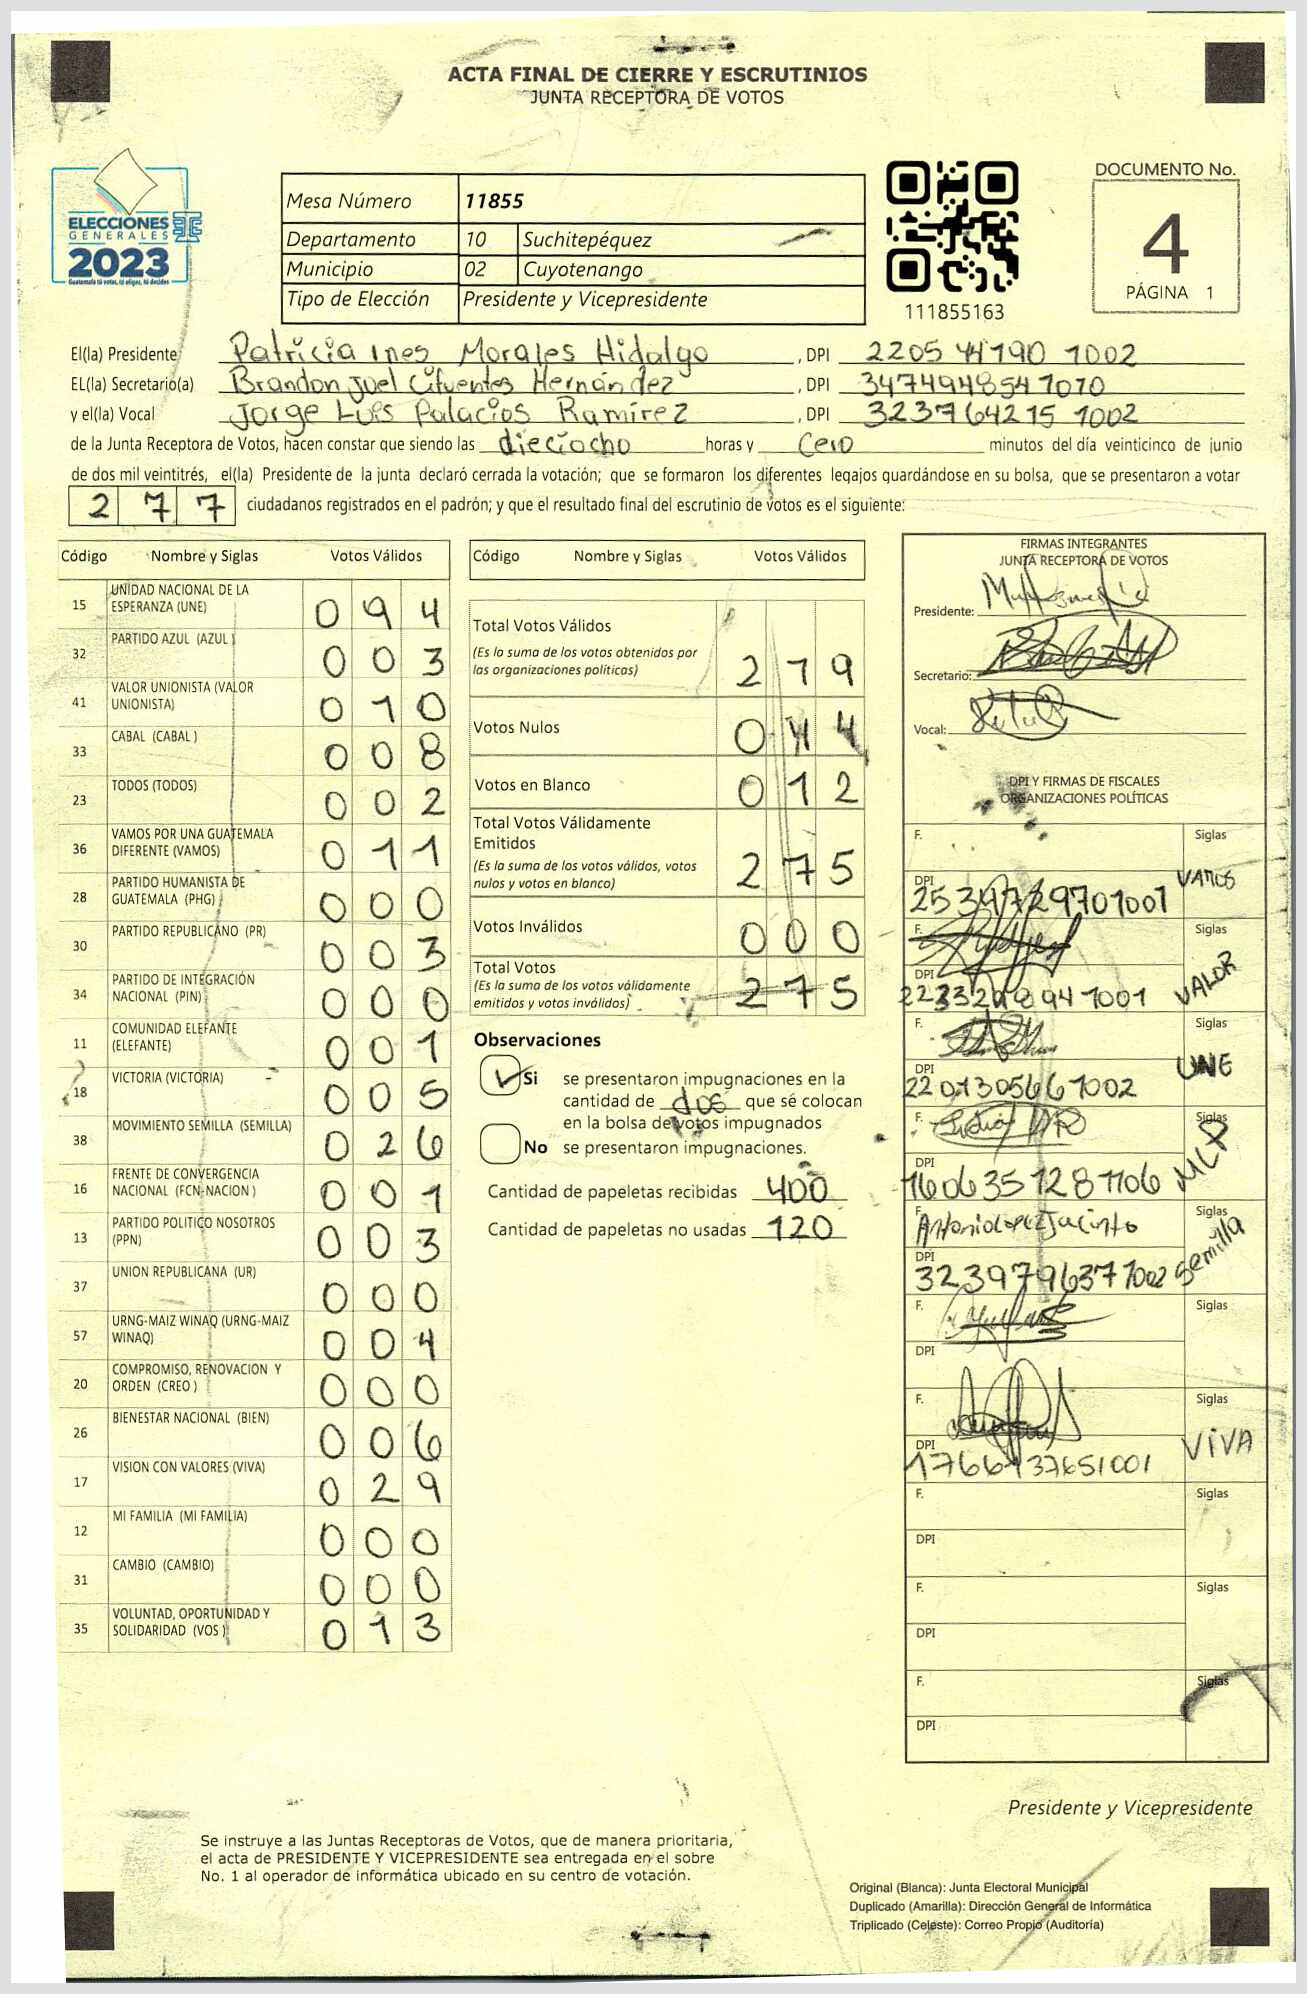 ACTA FINAL DE CIERRE Y ESCRUTINIOS
JUNTA RECEPTORA DE VOTOS
ELECCIONES
GENERALES
2023
Guatemala tú votas, tú eliges, tú decides
Mesa Número 11855
Departamento 10 Suchitepéquez
Municipio 02 Cuyotenango
Tipo de Elección Presidente y Vicepresidente
111855163
DOCUMENTO No.
4
PÁGINA 1
El(la) Presidente Patricia Ines Morales Hidalgo, DPI 2205 44190 1002
EL(la) Secretario(a) Brandon Juel Cifuentes Hernández, DPI 3474948541010
y el(la) Vocal Jorge Luis Palacios Ramírez, DPI 323764215 1002
de la Junta Receptora de Votos, hacen constar que siendo las dieciocho horas y cero minutos del día veinticinco de junio
de dos mil veintitrés, el(la) Presidente de la junta declaró cerrada la votación; que se formaron los diferentes legajos guardándose en su bolsa, que se presentaron a votar
277 ciudadanos registrados en el padrón; y que el resultado final del escrutinio de votos es el siguiente:
Código Nombre y Siglas Votos Válidos
15 UNIDAD NACIONAL DE LA ESPERANZA (UNE) 094
32 PARTIDO AZUL (AZUL) 003
41 VALOR UNIONISTA (VALOR UNIONISTA) 010
33 CABAL (CABAL) 008
23 TODOS (TODOS) 002
36 VAMOS POR UNA GUATEMALA DIFERENTE (VAMOS) 011
28 PARTIDO HUMANISTA DE GUATEMALA (PHG) 000
30 PARTIDO REPUBLICANO (PR) 003
34 PARTIDO DE INTEGRACIÓN NACIONAL (PIN) 000
11 COMUNIDAD ELEFANTE (ELEFANTE) 001
18 VICTORIA (VICTORIA) 005
38 MOVIMIENTO SEMILLA (SEMILLA) 026
16 FRENTE DE CONVERGENCIA NACIONAL (FCN-NACION) 001
13 PARTIDO POLITICO NOSOTROS (PPN) 003
37 UNION REPUBLICANA (UR) 000
57 URNG-MAIZ WINAQ (URNG-MAIZ WINAQ) 004
20 COMPROMISO, RENOVACION Y ORDEN (CREO) 000
26 BIENESTAR NACIONAL (BIEN) 006
17 VISION CON VALORES (VIVA) 029
12 MI FAMILIA (MI FAMILIA) 000
31 CAMBIO (CAMBIO) 000
35 VOLUNTAD, OPORTUNIDAD Y SOLIDARIDAD (VOS) 013
Código Nombre y Siglas Votos Válidos
Total Votos Válidos
(Es la suma de los votos obtenidos por
las organizaciones políticas) 219
Votos Nulos 044
Votos en Blanco 012
Total Votos Válidamente
Emitidos
(Es la suma de los votos válidos, votos
nulos y votos en blanco) 275
Votos Inválidos 000
Total Votos
(Es la suma de los votos válidamente
emitidos y votos inválidos) 275
Observaciones
Si se presentaron impugnaciones en la
cantidad de dos que sé colocan
en la bolsa de votos impugnados
No se presentaron impugnaciones.
Cantidad de papeletas recibidas 400
Cantidad de papeletas no usadas 120
FIRMAS INTEGRANTES
JUNTA RECEPTORA DE VOTOS
Presidente:
Secretario:
Vocal:
DPI Y FIRMAS DE FISCALES
ORGANIZACIONES POLÍTICAS
F. Siglas
DPI VAMOS
F. Siglas
DPI VALOR
F. Siglas
DPI 2201305661002 UNE
F. Siglas
DPI 1606351281106 MLP
F. Antonio Lopez Jacinto Siglas
DPI 3239796371002 Semilla
F. Siglas
DPI
F. Siglas
DPI VIVA
F. Siglas
DPI
F. Siglas
DPI
F. Siglas
DPI
Presidente y Vicepresidente
Se instruye a las Juntas Receptoras de Votos, que de manera prioritaria,
el acta de PRESIDENTE Y VICEPRESIDENTE sea entregada en el sobre
No. 1 al operador de informática ubicado en su centro de votación.
Original (Blanca): Junta Electoral Municipal
Duplicado (Amarilla): Dirección General de Informática
Triplicado (Celeste): Correo Propio (Auditoría)